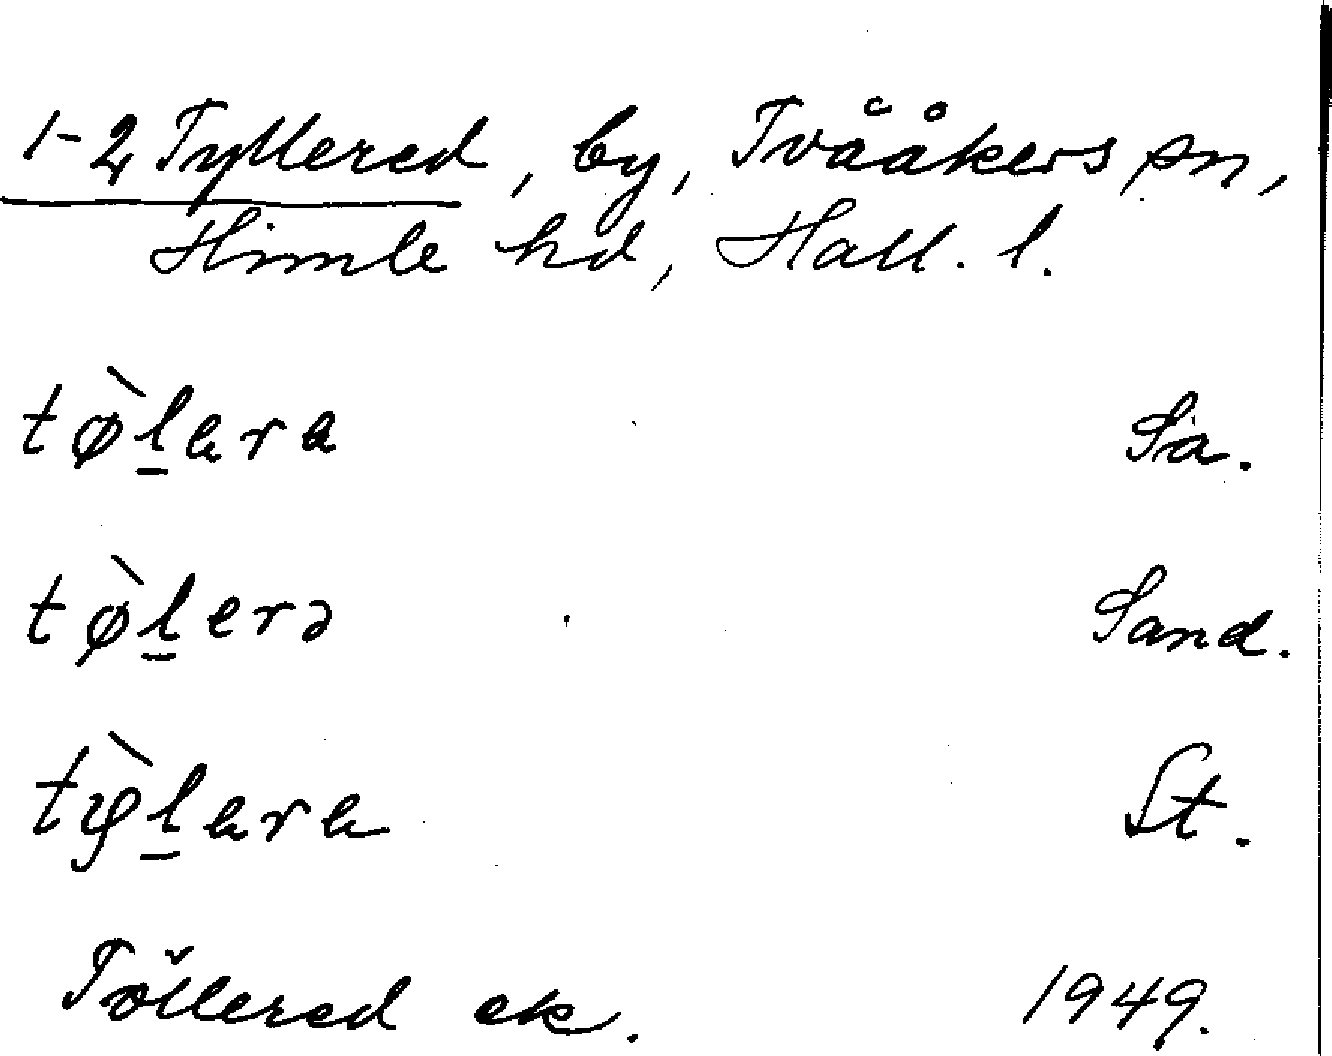 1-2 Tyllered, by, Tvååkers sn,
Himle hd, Hall. l.
tø̀l̲ara Sa.
tø̀l̲erə Sand.
tỳl̲ara St.
Töllered ek. 1949.